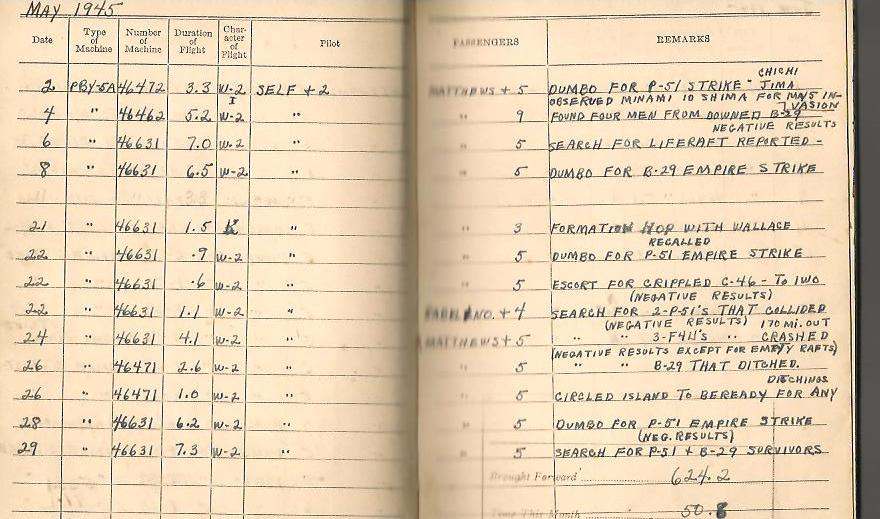 MAY 1945
Date Type of Machine Number of Machine Duration of Flight Character of Flight Pilot PASSENGERS REMARKS
CHICHI
2 PBY-5A 46472 3.3 W-2 SELF + 2 MATTHEWS + 5 DUMBO FOR P-51 STRIKE - JIMA
I OBSERVED MINAMI IO SHIMA FOR IN-
VASION
4 " 46462 5.2 W-2 " " 9 FOUND FOUR MEN FROM DOWNED B-29
NEGATIVE RESULTS
6 " 46631 7.0 W-2 " " 5 SEARCH FOR LIFERAFT REPORTED -
8 " 46631 6.5 W-2 " " 5 DUMBO FOR B-29 EMPIRE STRIKE
21 " 46631 1.5 K " " 3 FORMATION HOP WITH WALLACE
RECALLED
22 " 46631 .9 W-2 " " 5 DUMBO FOR P-51 EMPIRE STRIKE
22 " 46631 .6 W-2 " " 5 ESCORT FOR CRIPPLED C-46 - TO IWO
(NEGATIVE RESULTS)
22 " 46631 1.1 W-2 " + 4 SEARCH FOR 2-P-51'S THAT COLLIDED
(NEGATIVE RESULTS) 170 MI. OUT
24 " 46631 4.1 W-2 " MATTHEWS + 5 " " 3-F4U'S " CRASHED
(NEGATIVE RESULTS EXCEPT FOR EMPTY RAFTS)
26 " 46471 2.6 W-2 " " 5 " " B-29 THAT DITCHED.
DITCHINGS
26 " 46471 1.0 W-2 " " 5 CIRCLED ISLAND TO BE READY FOR ANY
28 " 46631 6.2 W-2 " " 5 DUMBO FOR P-51 EMPIRE STRIKE
(NEG. RESULTS)
29 " 46631 7.3 W-2 " " 5 SEARCH FOR P-51 + B-29 SURVIVORS
Brought Forward 624.2
Time This Month 50.8